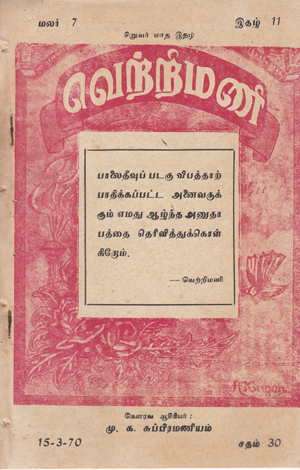 மலர் 7 இதழ் 11
சிறுவர் மாத இதழ்
வெற்றிமணி
பாலைதீவுப் படகு விபத்தாற்
பாதிக்கப்பட்ட அனைவருக்
கும் எமது ஆழ்ந்த அனுதா
பத்தை தெரிவித்துக்கொள்
கிறோம்.
— வெற்றிமணி
கௌரவ ஆசிரியர் :
மு. க. சுப்பிரமணியம்
15-3-70 சதம் 30